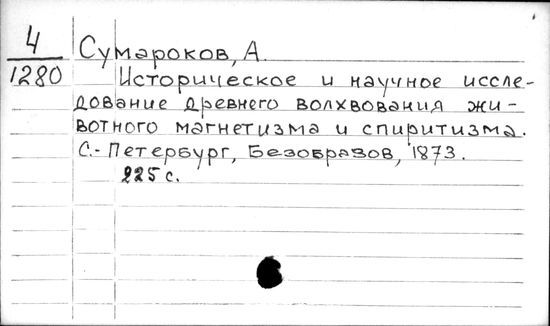 4
1280
Сумароков, А.
Историческое и научное иссле-
дование древнего волхвования жи-
вотного магнетизма и спиритизма.
С.-Петербург, Безобразов, 1873.
225 с.